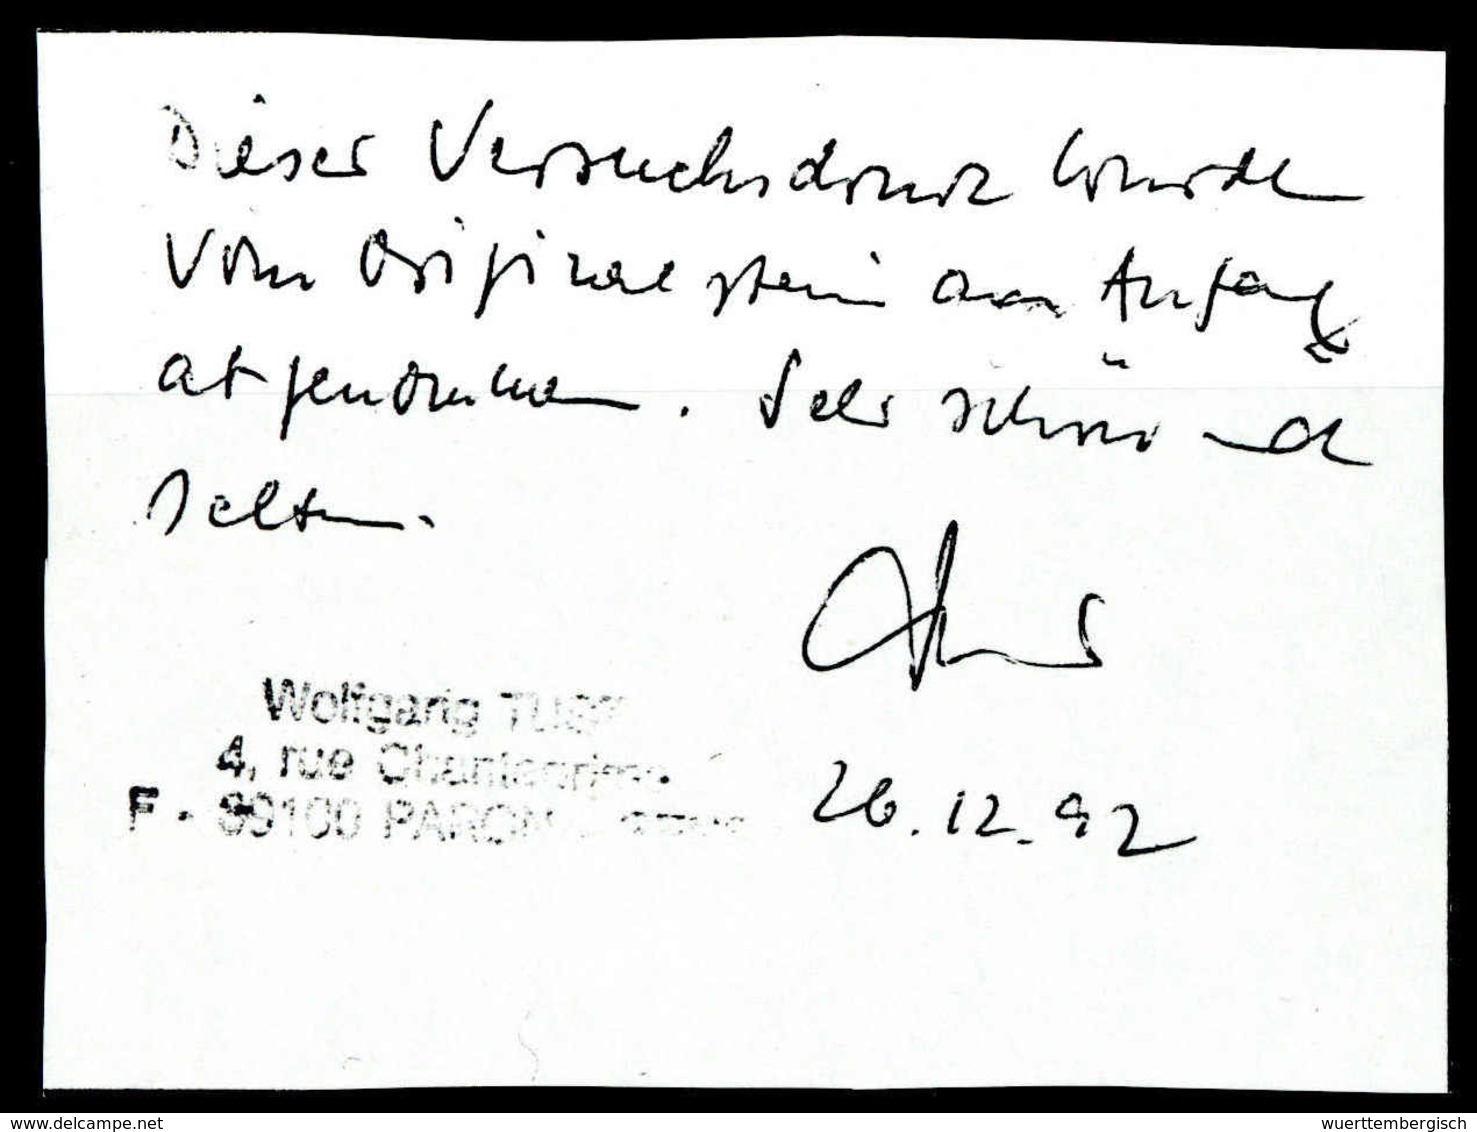 Dieser Versuchsdruck wurde
vom Originalstein am Anfang
abgenommen. Sehr schön und
selten.
Wolfgang
4, rue
F - 89100 PARON
26.12.92
www.delcampe.net
wuerttembergisch